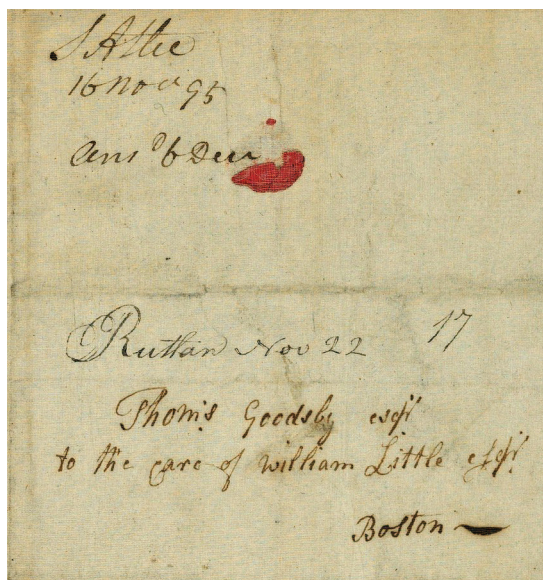 16 Nov 95
Ans 6 Decr
Rutlan Nov 22 17
Thoms Goodsby esqr
to the care of William Little esqr
Boston